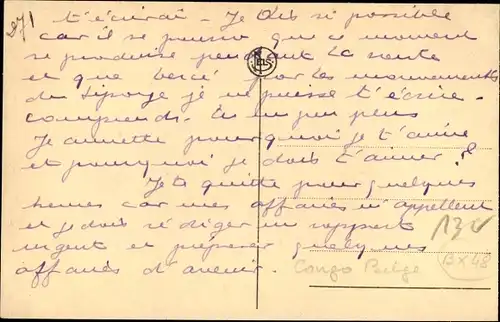 271
t'écrirai - Je dis si possible
car il se pourra que ce moment
se produise pendant la route
et que bercé par les mouvements
du tipoye je ne puisse t'écrire.
Comprends-tu un peu
Jeannette pourquoi je t'aime
et pourquoi je dois t'aimer ?
Je te quitte pour quelques
heures car mes affaires m'appellent
et je dois rédiger un rapport
urgent et préparer quelques
affaires d'avenir.
130
Congo Belge
BX48